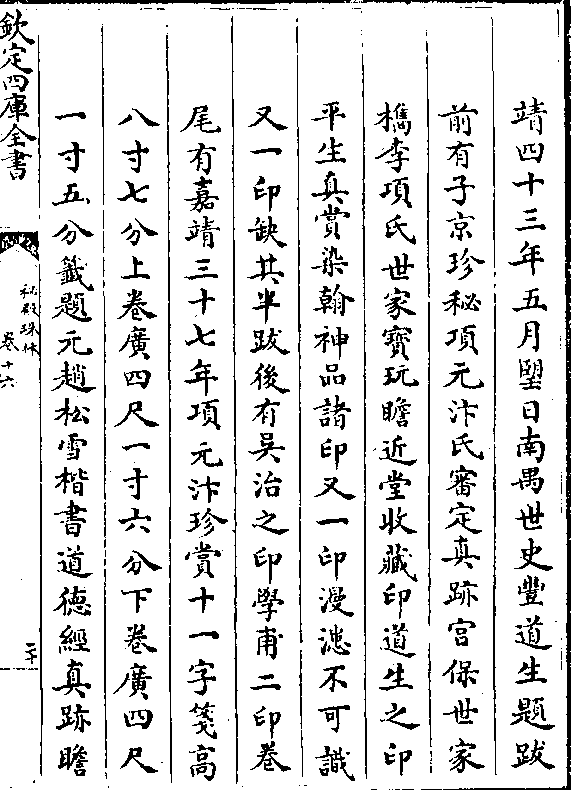 靖四十三年五月朢日南禺世史豐道生題跋
前有子京珍秘項元汴氏審定真跡宫保世家
檇李項氏世家寶玩瞻近堂收藏印道生之印
平生真賞染翰神品諸印又一印漫漶不可識
又一印缺其半跋後有吳治之印學甫二印卷
尾有嘉靖三十七年項元汴珍賞十一字箋髙
八寸七分上卷廣四尺一寸六分下卷廣四尺
一寸五分籤題元趙松雪楷書道徳經真跡瞻
欽定四庫全書
秘殿珠林
卷十六
二十